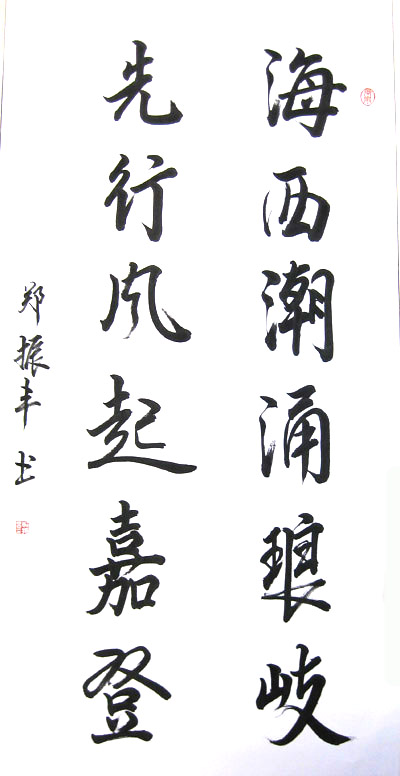 海西潮涌琅岐
先行风起嘉登
郑振丰书